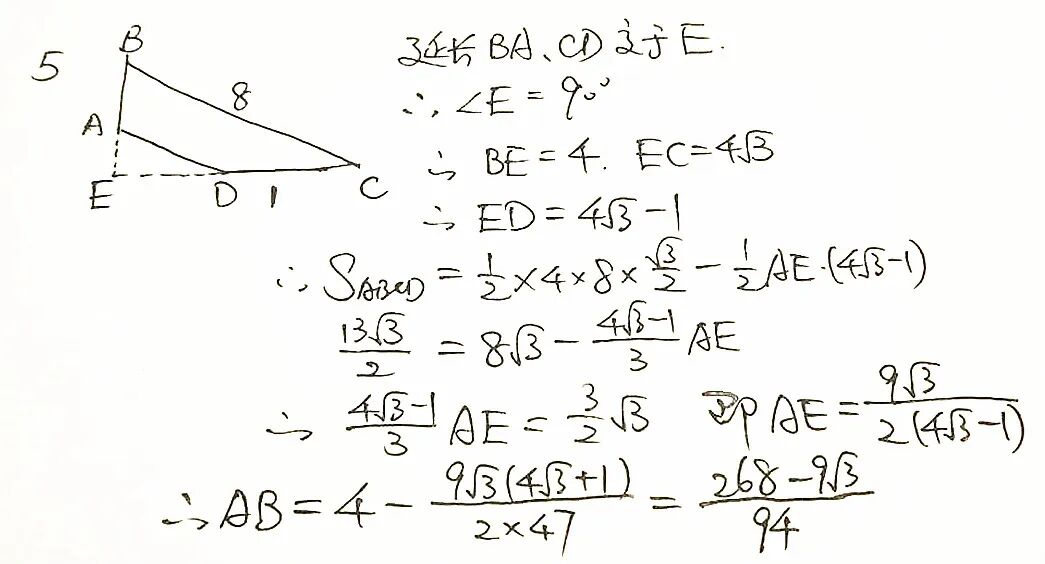 5
B
8
A
E
D
1
C
延长BA、CD交于E.
∴ ∠E = 90°
∴ BE = 4. EC = 4√3
∴ ED = 4√3 − 1
∴ S_ABCD = 1/2 × 4 × 8 × √3/2 − 1/2 AE·(4√3−1)
13√3/2 = 8√3 − (4√3−1)/3 AE
∴ (4√3−1)/3 AE = 3/2 √3 即 AE = 9√3/(2(4√3−1))
∴ AB = 4 − 9√3(4√3+1)/(2×47) = (268−9√3)/94